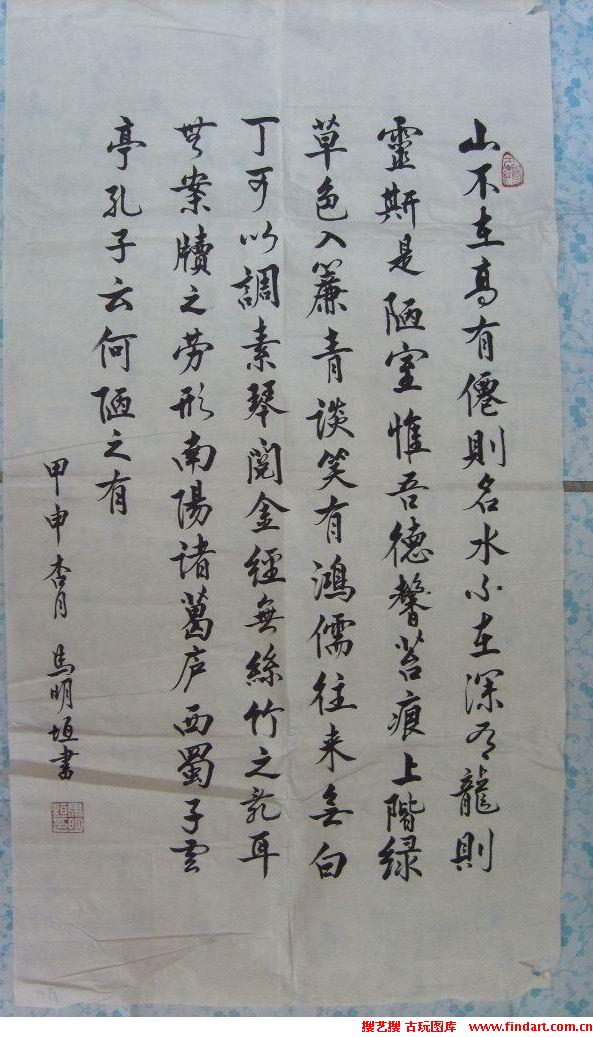 山不在高有僊則名水不在深有龍則
靈斯是陋室惟吾德馨苔痕上階緑
草色入簾青談笑有鴻儒往来無白
丁可以調素琴閲金經無絲竹之亂耳
無案牘之劳形南陽諸葛庐西蜀子雲
亭孔子云何陋之有
甲申 杏月 馬明垣書
搜艺搜 古玩图库 www.findart.com.cn